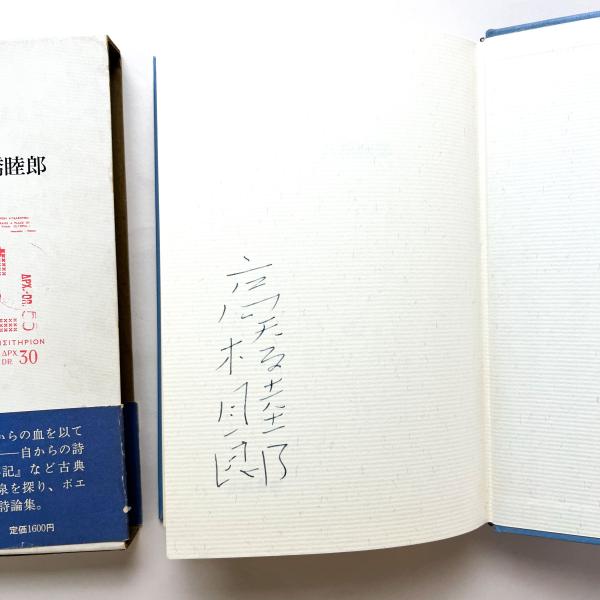 橋睦郎
ΑΡΧ.-DR.
ΕΙΣΙΤΗΡΙΟΝ
ΔΡΧ
DR. 30
からの血を以て
――自からの詩
記』など古典
泉を探り、ポエ
詩論集。
定価1600円
高橋睦郎